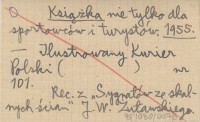 Książka nie tylko dla
sportowców i turystów. 1955.
— Ilustrowany Kurier
Polski ( ) nr
101.
Rec. z „Sygnałów ze skal-
nych ścian” J. W. Żuławskiego.